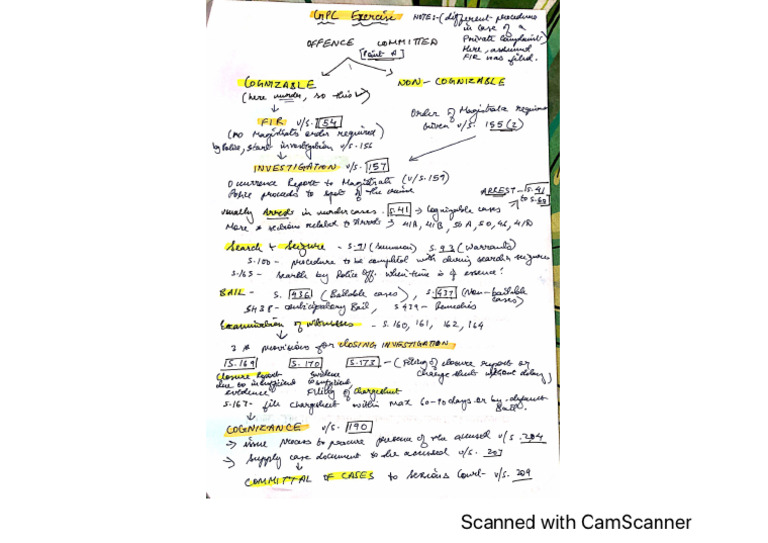 CrPC Exercise
NOTES - (different procedures
in case of a
Private Complaint)
Here, assumed
FIR was filed.
OFFENCE COMMITTED
[Point A]
COGNIZABLE
NON - COGNIZABLE
(here murder, so this ✓)
Order of Magistrate required
u/s. 155(2)
FIR u/s. 154
(No Magistrate order required)
by Police, start investigation u/s. 156
INVESTIGATION u/s. 157
Occurrence Report to Magistrate (u/s. 159)
Police proceeds to spot of the crime
ARREST - S.41
to S.60
usually Arrest in murder cases. S.41 → Cognizable cases
More * sections related to Arrest → 41A, 41B, 50A, 50, 46, 41D
Search & Seizure - S.91 (Summon) S.93 (Warrants)
S.100 - procedure to be complied with during search & seizure
S.165 - search by Police Off. when time is of essence!
BAIL - S. 436 (Bailable cases), S. 437 (Non-bailable
cases)
S438 - anticipatory Bail, S 439 - Remedies
Examination of Witnesses - S. 160, 161, 162, 164
3 * provisions for CLOSING INVESTIGATION
S.169 S.170 S.173 - (Filing of closure report or
charge sheet without delay)
Closure Report
due to insufficient
evidence
evidence
sufficient
Filing of chargesheet
S.167 - file chargesheet within max 60-90 days or by-default
Bail.
COGNIZANCE u/s. 190
→ issue process to procure presence of the accused u/s. 204
→ Supply case document to the accused u/s. 207
COMMITTAL OF CASES to Sessions Court - u/s. 209
Scanned with CamScanner